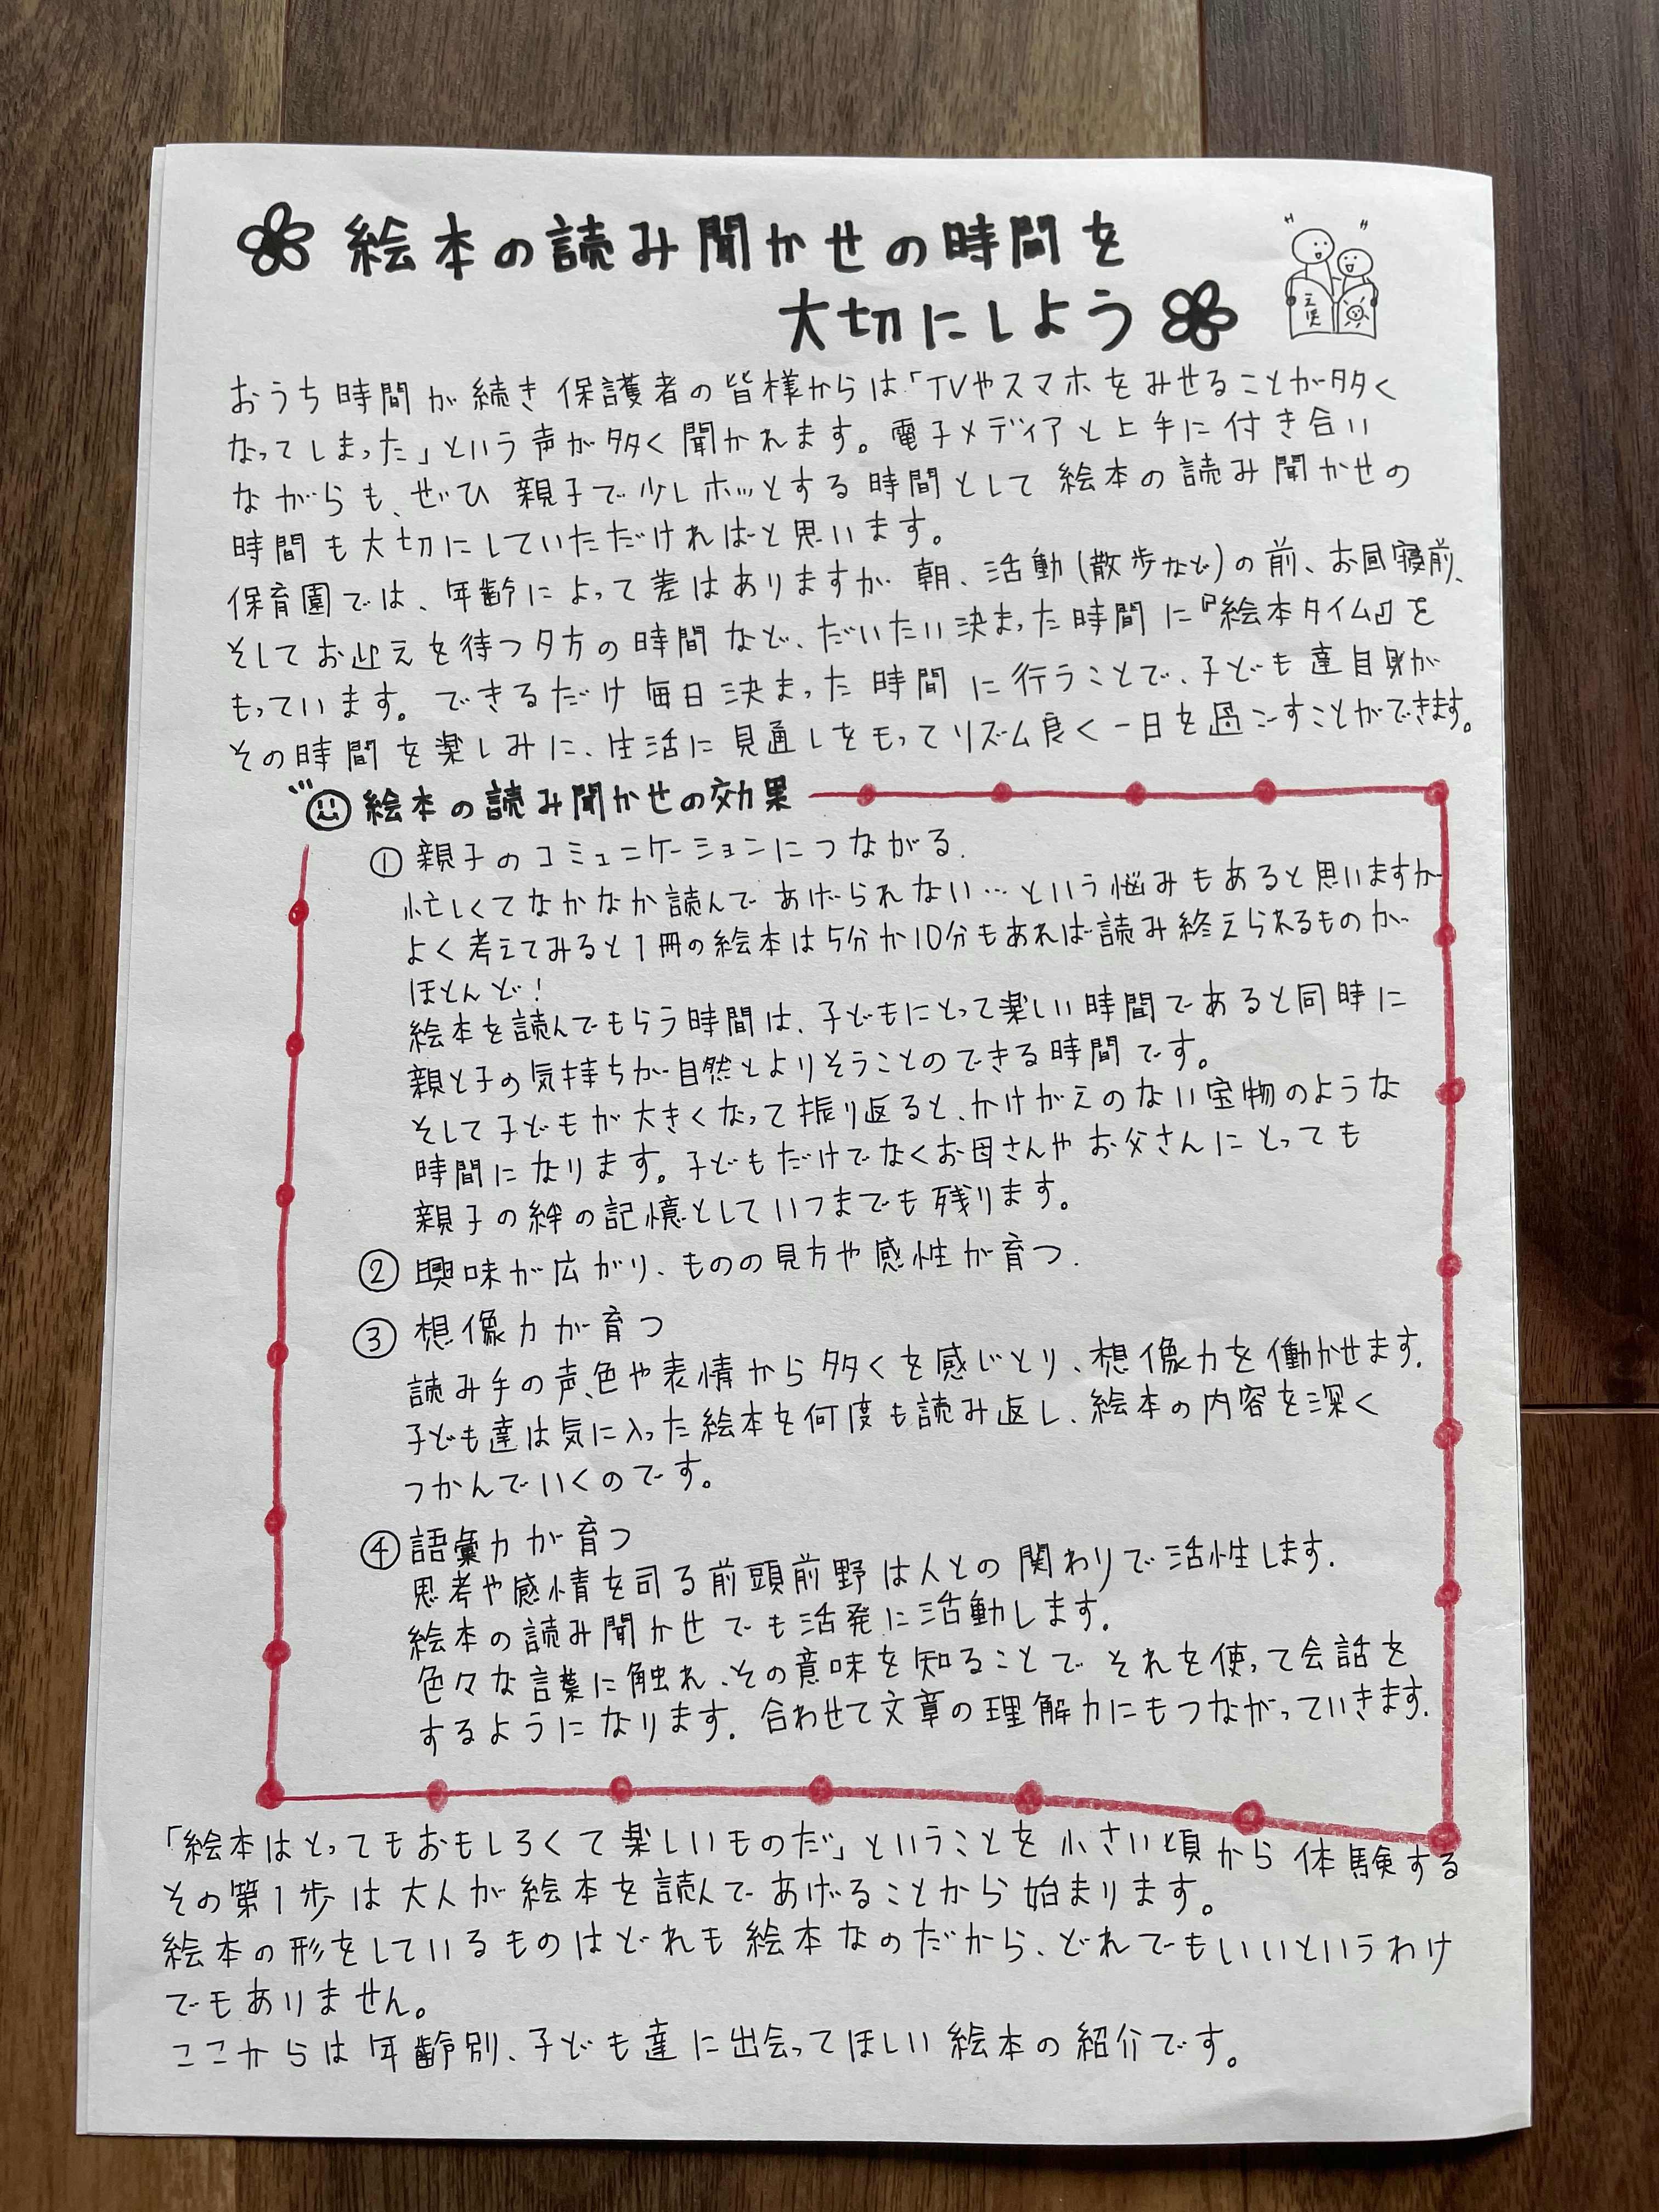 絵本の読み聞かせの時間を
大切にしよう
おうち時間が続き保護者の皆様からは「TVやスマホをみせることが多く
なってしまった」という声が多く聞かれます。電子メディアと上手に付き合い
ながらも、ぜひ親子で少しホッとする時間として絵本の読み聞かせの
時間も大切にしていただければと思います。
保育園では、年齢によって差はありますが朝、活動(散歩など)の前、お昼寝前、
そしてお迎えを待つ夕方の時間など、だいたい決まった時間に『絵本タイム』を
もっています。できるだけ毎日決まった時間に行うことで、子ども達自身が
その時間を楽しみに、生活に見通しをもってリズム良く一日を過ごすことができます。
絵本の読み聞かせの効果
① 親子のコミュニケーションにつながる.
忙しくてなかなか読んであげられない…という悩みもあると思いますが
よく考えてみると1冊の絵本は5分か10分もあれば読み終えられるものが
ほとんど!
絵本を読んでもらう時間は、子どもにとって楽しい時間であると同時に
親と子の気持ちが自然とよりそうことのできる時間です。
そして子どもが大きくなって振り返ると、かけがえのない宝物のような
時間になります。子どもだけでなくお母さんやお父さんにとっても
親子の絆の記憶としていつまでも残ります。
② 興味が広がり、ものの見方や感性が育つ.
③ 想像力が育つ
読み手の声色や表情から多くを感じとり、想像力を働かせます.
子ども達は気に入った絵本を何度も読み返し、絵本の内容を深く
つかんでいくのです。
④ 語彙力が育つ
思考や感情を司る前頭前野は人との関わりで活性します.
絵本の読み聞かせでも活発に活動します.
色々な言葉に触れ、その意味を知ることでそれを使って会話を
するようになります. 合わせて文章の理解力にもつながっていきます.
「絵本はとってもおもしろくて楽しいものだ」ということを小さい頃から体験する
その第1歩は大人が絵本を読んであげることから始まります。
絵本の形をしているものはどれも絵本なのだから、どれでもいいというわけ
でもありません。
ここからは年齢別、子ども達に出会ってほしい絵本の紹介です。